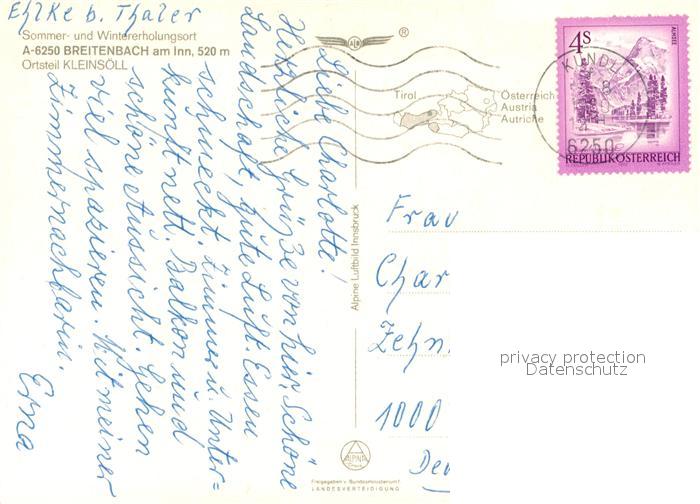 Ehlke b. Thaler
Sommer- und Wintererholungsort
A-6250 BREITENBACH am Inn, 520 m
Ortsteil KLEINSÖLL
Liebe Charlotte!
Herzliche Grüße von hier, Schöne
Landschaft, gute Luft. Essen
schmeckt. Zimmer u. Unter=
kunft nett. Balkon und
schöne Aussicht. Gehen
viel spazieren. Mit meiner
Zimmernachbarin.
Erna
®
Tirol
Österreich
Austria
Autriche
KUNDL
6250
ALMSEE
4S
REPUBLIK ÖSTERREICH
Alpine Luftbild Innsbruck
Frau
Char
Zehn
1000
ALPINE
Freigegeben v. Bundesministerium f.
LANDESVERTEIDIGUNG
privacy protection
Datenschutz